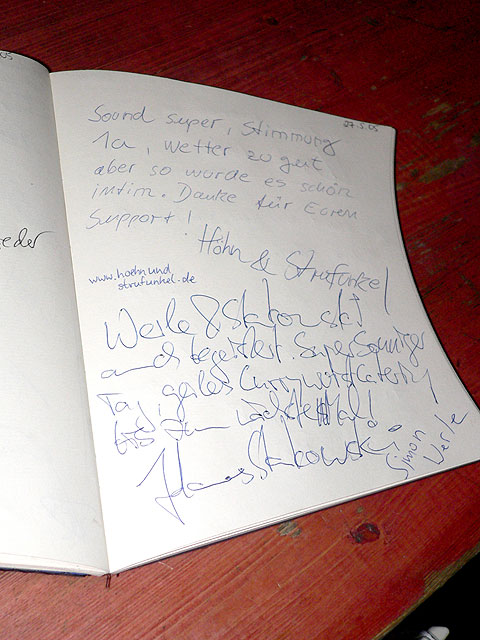 27.5.05
Sound super, Stimmung
1a, Wetter zu gut
aber so wurde es schön
intim. Danke für Euren
Support!
Höhn & Strufunkel
www.hoehnund
strufunkel.de
Werle & Stakowski
auch begeistert. Super Sonniger
Tag, geiles Currywurstcatering
bis zum nächsten Mal!
Stakowski
Simon
Werle
eder
05